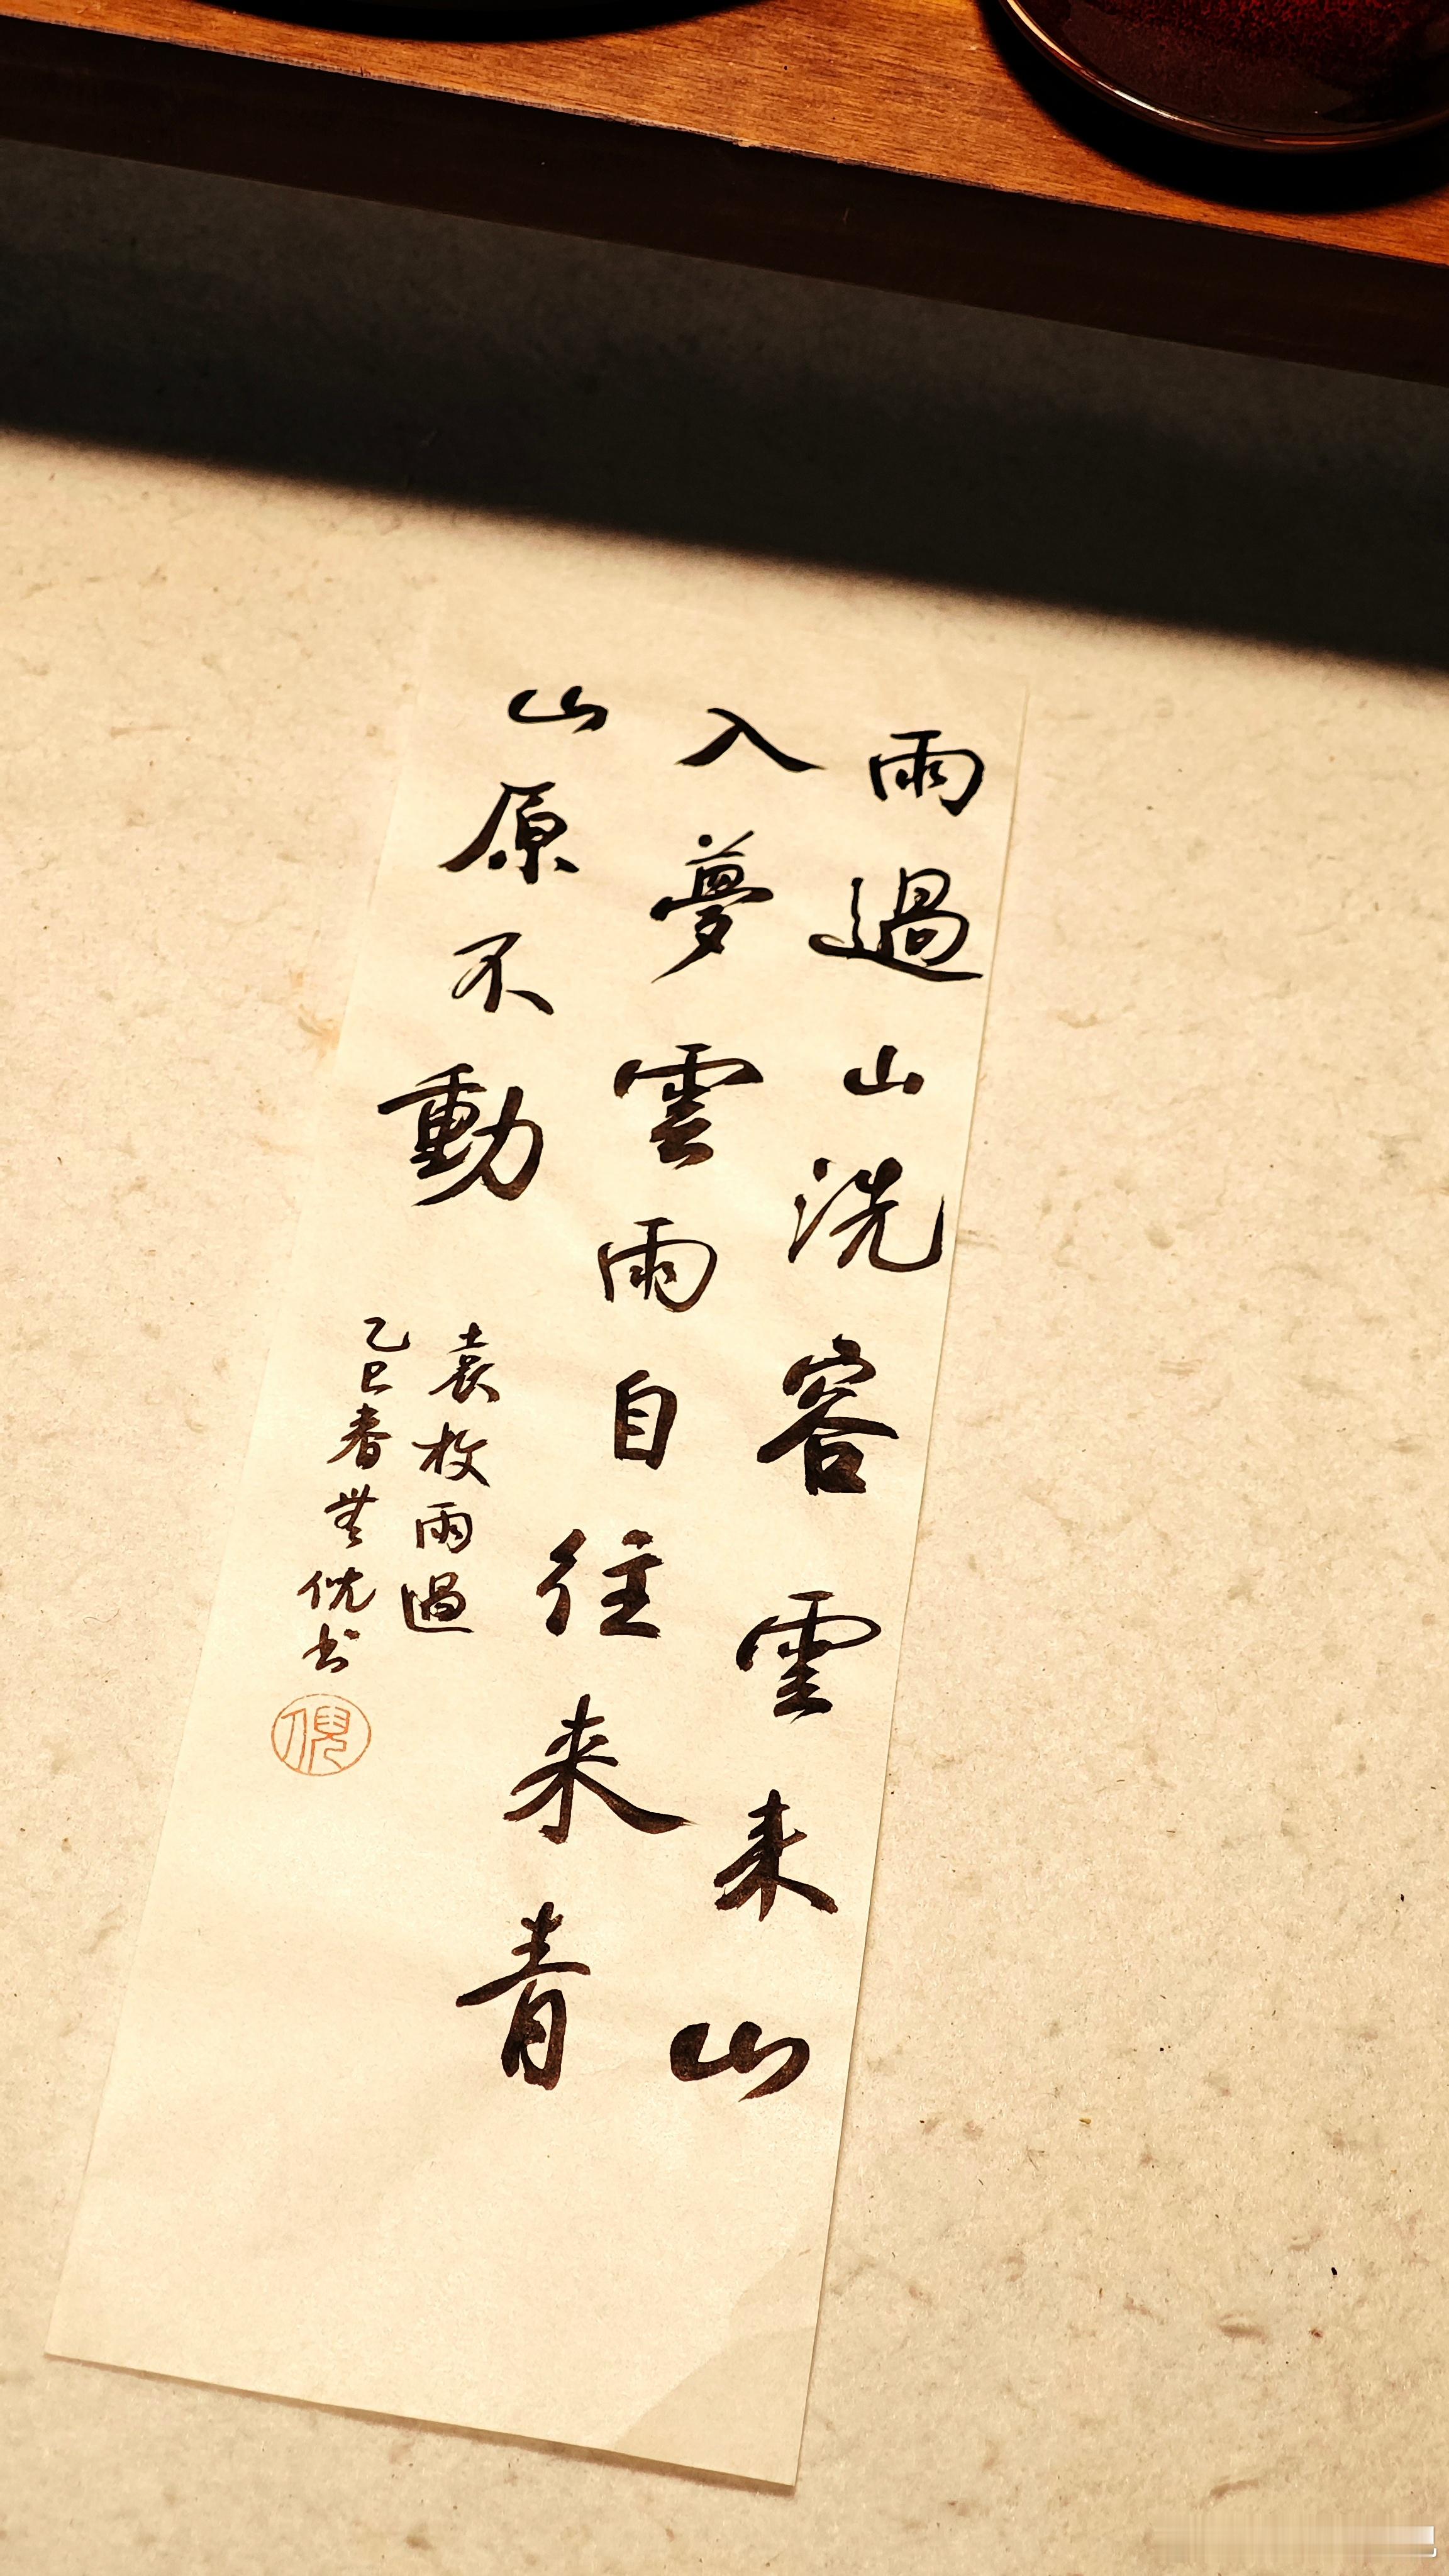 雨過山洗容雲来山
入夢雲雨自往来青
山原不動
袁枚雨過
乙巳春無倪书
倪